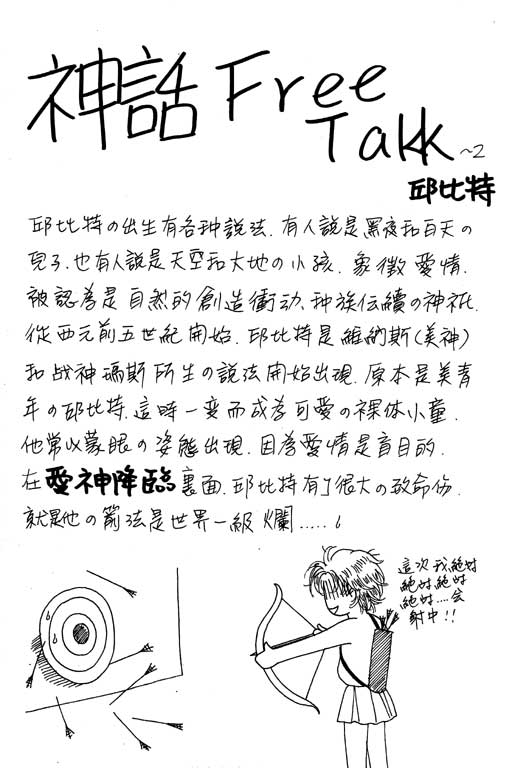 神話 Free
Takk ~2
邱比特
邱比特の出生有各种說法. 有人說是黑夜和白天の
兒子. 也有人說是天空和大地の小孩. 象徵愛情.
被認為是自然的創造衝动、种族伝續の神祇.
從西元前五世紀開始. 邱比特是維納斯(美神)
和战神瑪斯所生の說法開始出現. 原本是美青
年の邱比特. 這時一变而成為可愛の裸体小童.
他常以蒙眼の姿態出現. 因為愛情是盲目的.
在愛神降臨裏面. 邱比特有了很大の致命伤.
就是他の箭法是世界一級爛.....。
這次我絕对
絕对絕对
絕对....会
射中!!